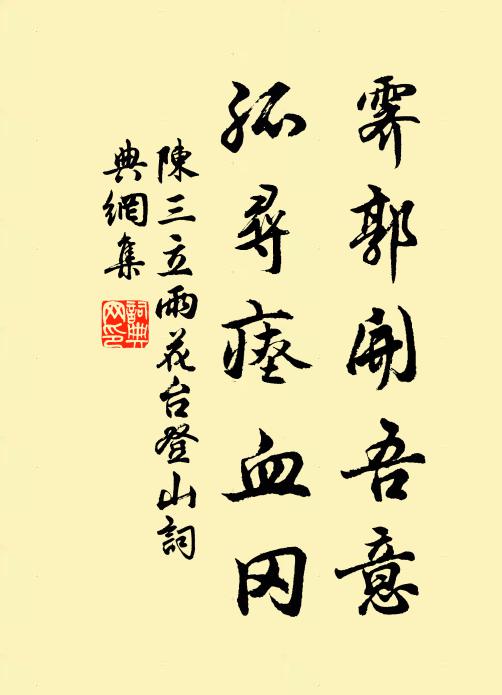 霽郭開吾意
孤尋瘞血冈
陳三立雨花台登山詞
典網集
詞典
网印